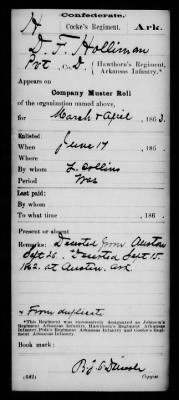 Confederate.
H Cocke's Regiment, Ark.
D. T. Holliman
Pvt, Co. D. (Hawthorn's Regiment, Arkansas Infantry.*
Appears on
Company Muster Roll
of the organization named above,
for March & April, 1863.
Enlisted:
When June 17, 186 .
Where
By whom L. Collins
Period War
Last paid:
By whom
To what time , 186 .
Present or absent
Remarks: Deserted from Austin
Sept 26. Deserted Sept 15.
1862. at Austin. Ark
* From duplicate
*This Regiment was successively designated as Johnson's Regiment Arkansas Infantry, Hawthorn's Regiment Arkansas Infantry, Polk's Regiment Arkansas Infantry and Cocke's Regiment Arkansas Infantry.
Book mark:
(642) Copyist.